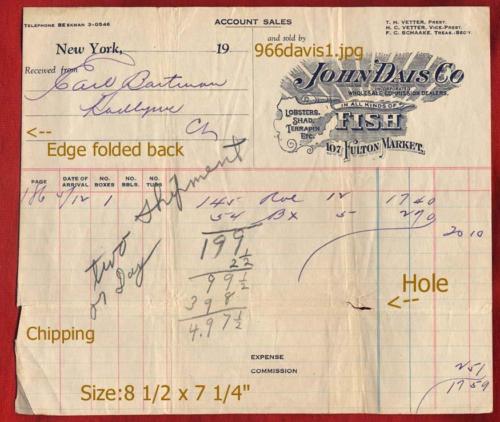 TELEPHONE BEEKMAN 3-0546
ACCOUNT SALES
T. H. VETTER, PREST.
H. C. VETTER, VICE-PREST.
F. C. SCHAAKE, TREAS.-SECY.
New York, 19
and sold by
966davis1.jpg
Received from
Earl Bartman
Ct
JOHN DAIS CO
INCORPORATED
WHOLESALE COMMISSION DEALERS
IN ALL KINDS OF
FISH
LOBSTERS,
SHAD,
TERRAPIN
ETC.
107 FULTON MARKET.
<--
Edge folded back
PAGE
DATE OF ARRIVAL
NO. BOXES
NO. BBLS.
NO. TUBS
186 5/12 1 145 Roe 12 1740
54 Bx 5 270
2010
two shipment
or Day
199
2 1/2
99 1/2
398
4.97 1/2
Hole
<--
Chipping
EXPENSE
COMMISSION
251
1759
Size:8 1/2 x 7 1/4"